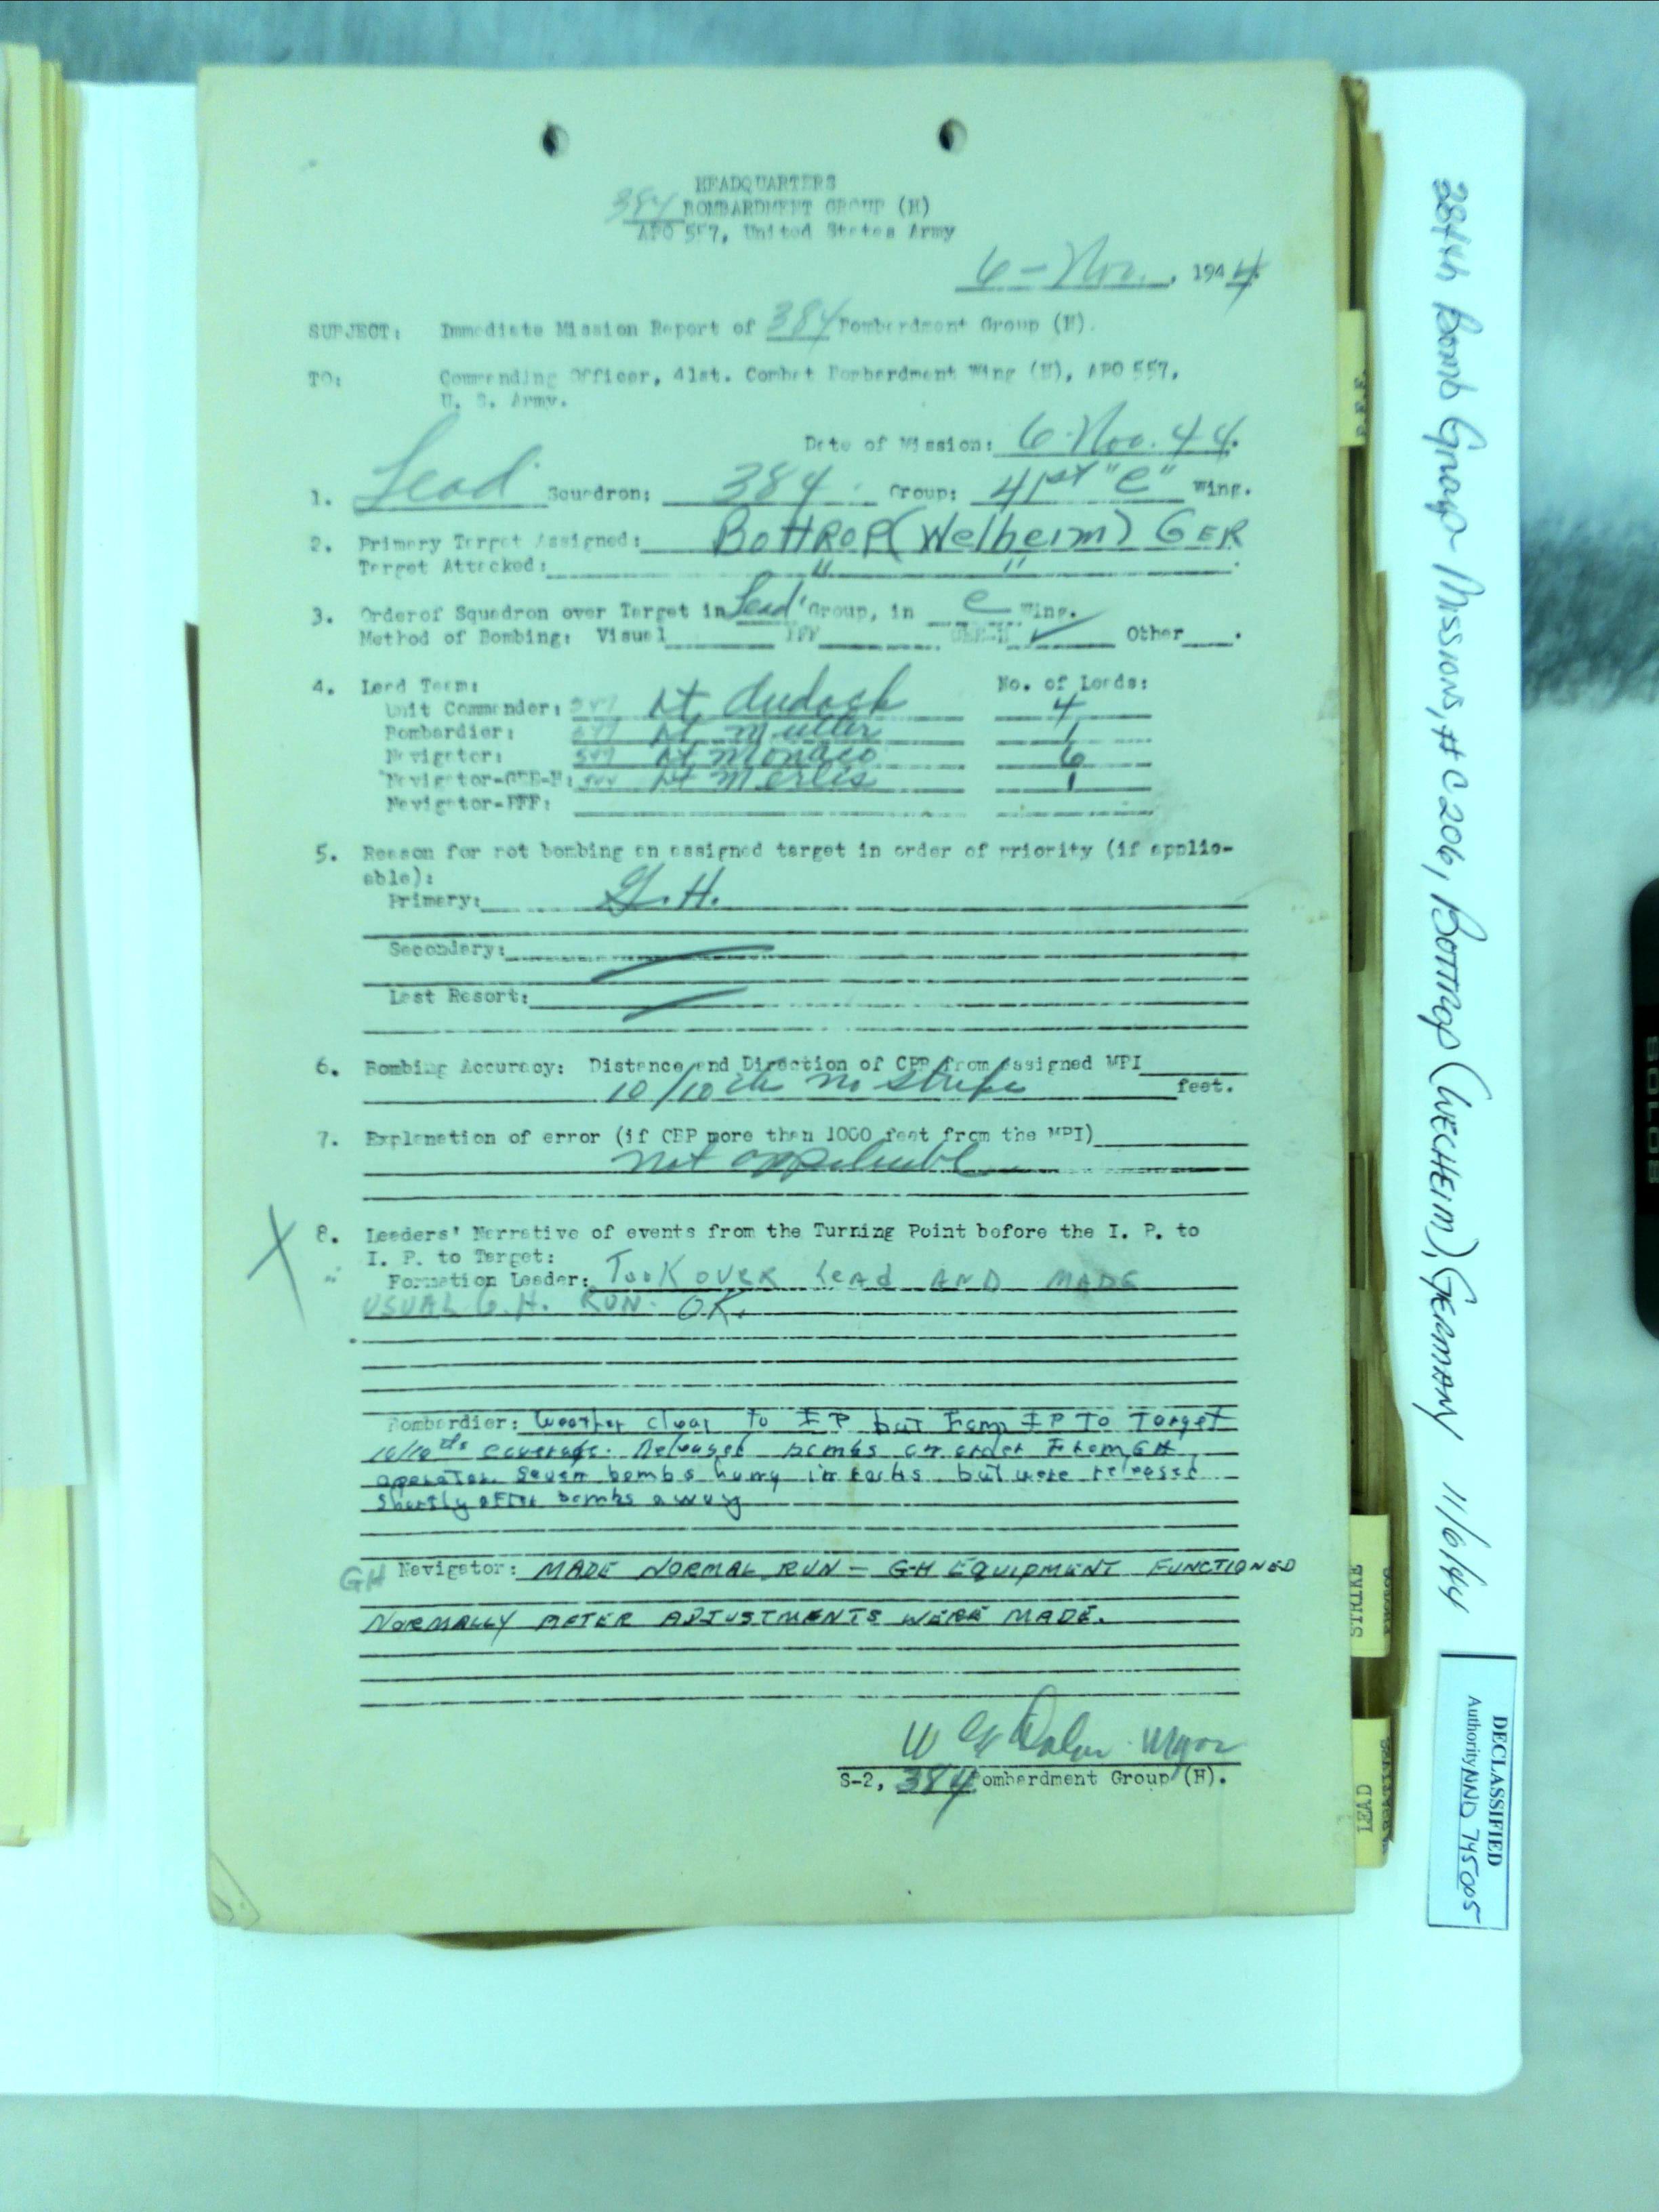 HEADQUARTERS
384 BOMBARDMENT GROUP (H)
APO 557, United States Army
6 - Nov., 1944
SUBJECT: Immediate Mission Report of 384 Bombardment Group (H).
TO: Commanding Officer, 41st. Combat Bombardment Wing (H), APO 557,
U. S. Army.
Date of Mission: 6-Nov. 44.
1. Lead Squadron; 384 Group; 41st "C" Wing.
2. Primary Target Assigned: BOTTROP (Welheim) GER
Target Attacked: " "
3. Order of Squadron over Target in Lead Group, in C Wing.
Method of Bombing: Visual PFF GEE-H ✓ Other .
4. Lead Team: No. of Leads:
Unit Commander: Lt 4
Bombardier: Lt 1
Navigator: Lt Monaco 6
Navigator-GEE-H: Lt Merlis 1
Navigator-PFF:
5. Reason for not bombing an assigned target in order of priority (if applic-
able):
Primary: G.H.
Secondary:
Last Resort:
6. Bombing Accuracy: Distance and Direction of CBP from assigned MPI
10/10 no strike feet.
7. Explanation of error (if CBP more than 1000 feet from the MPI)
not applicable
X 8. Leaders' Narrative of events from the Turning Point before the I. P. to
I. P. to Target:
Formation Leader: TOOK OVER LEAD AND MADE
USUAL G.H. RUN. OK.
Bombardier: Weather clear to IP but from IP to Target
10/10ths coverage. Released bombs on order from GH
operator. Seven bombs hung in racks but were released
shortly after bombs away
GH Navigator: MADE NORMAL RUN - G-H EQUIPMENT FUNCTIONED
NORMALLY AFTER ADJUSTMENTS WERE MADE.
W Major
S-2, 384 Bombardment Group (H).
P.F.F.
STRIKE
LEAD
384th Bomb Group Missions, # C206, BOTTROP (WELHEIM), GERMANY 11/6/44
DECLASSIFIED
Authority NND 745005